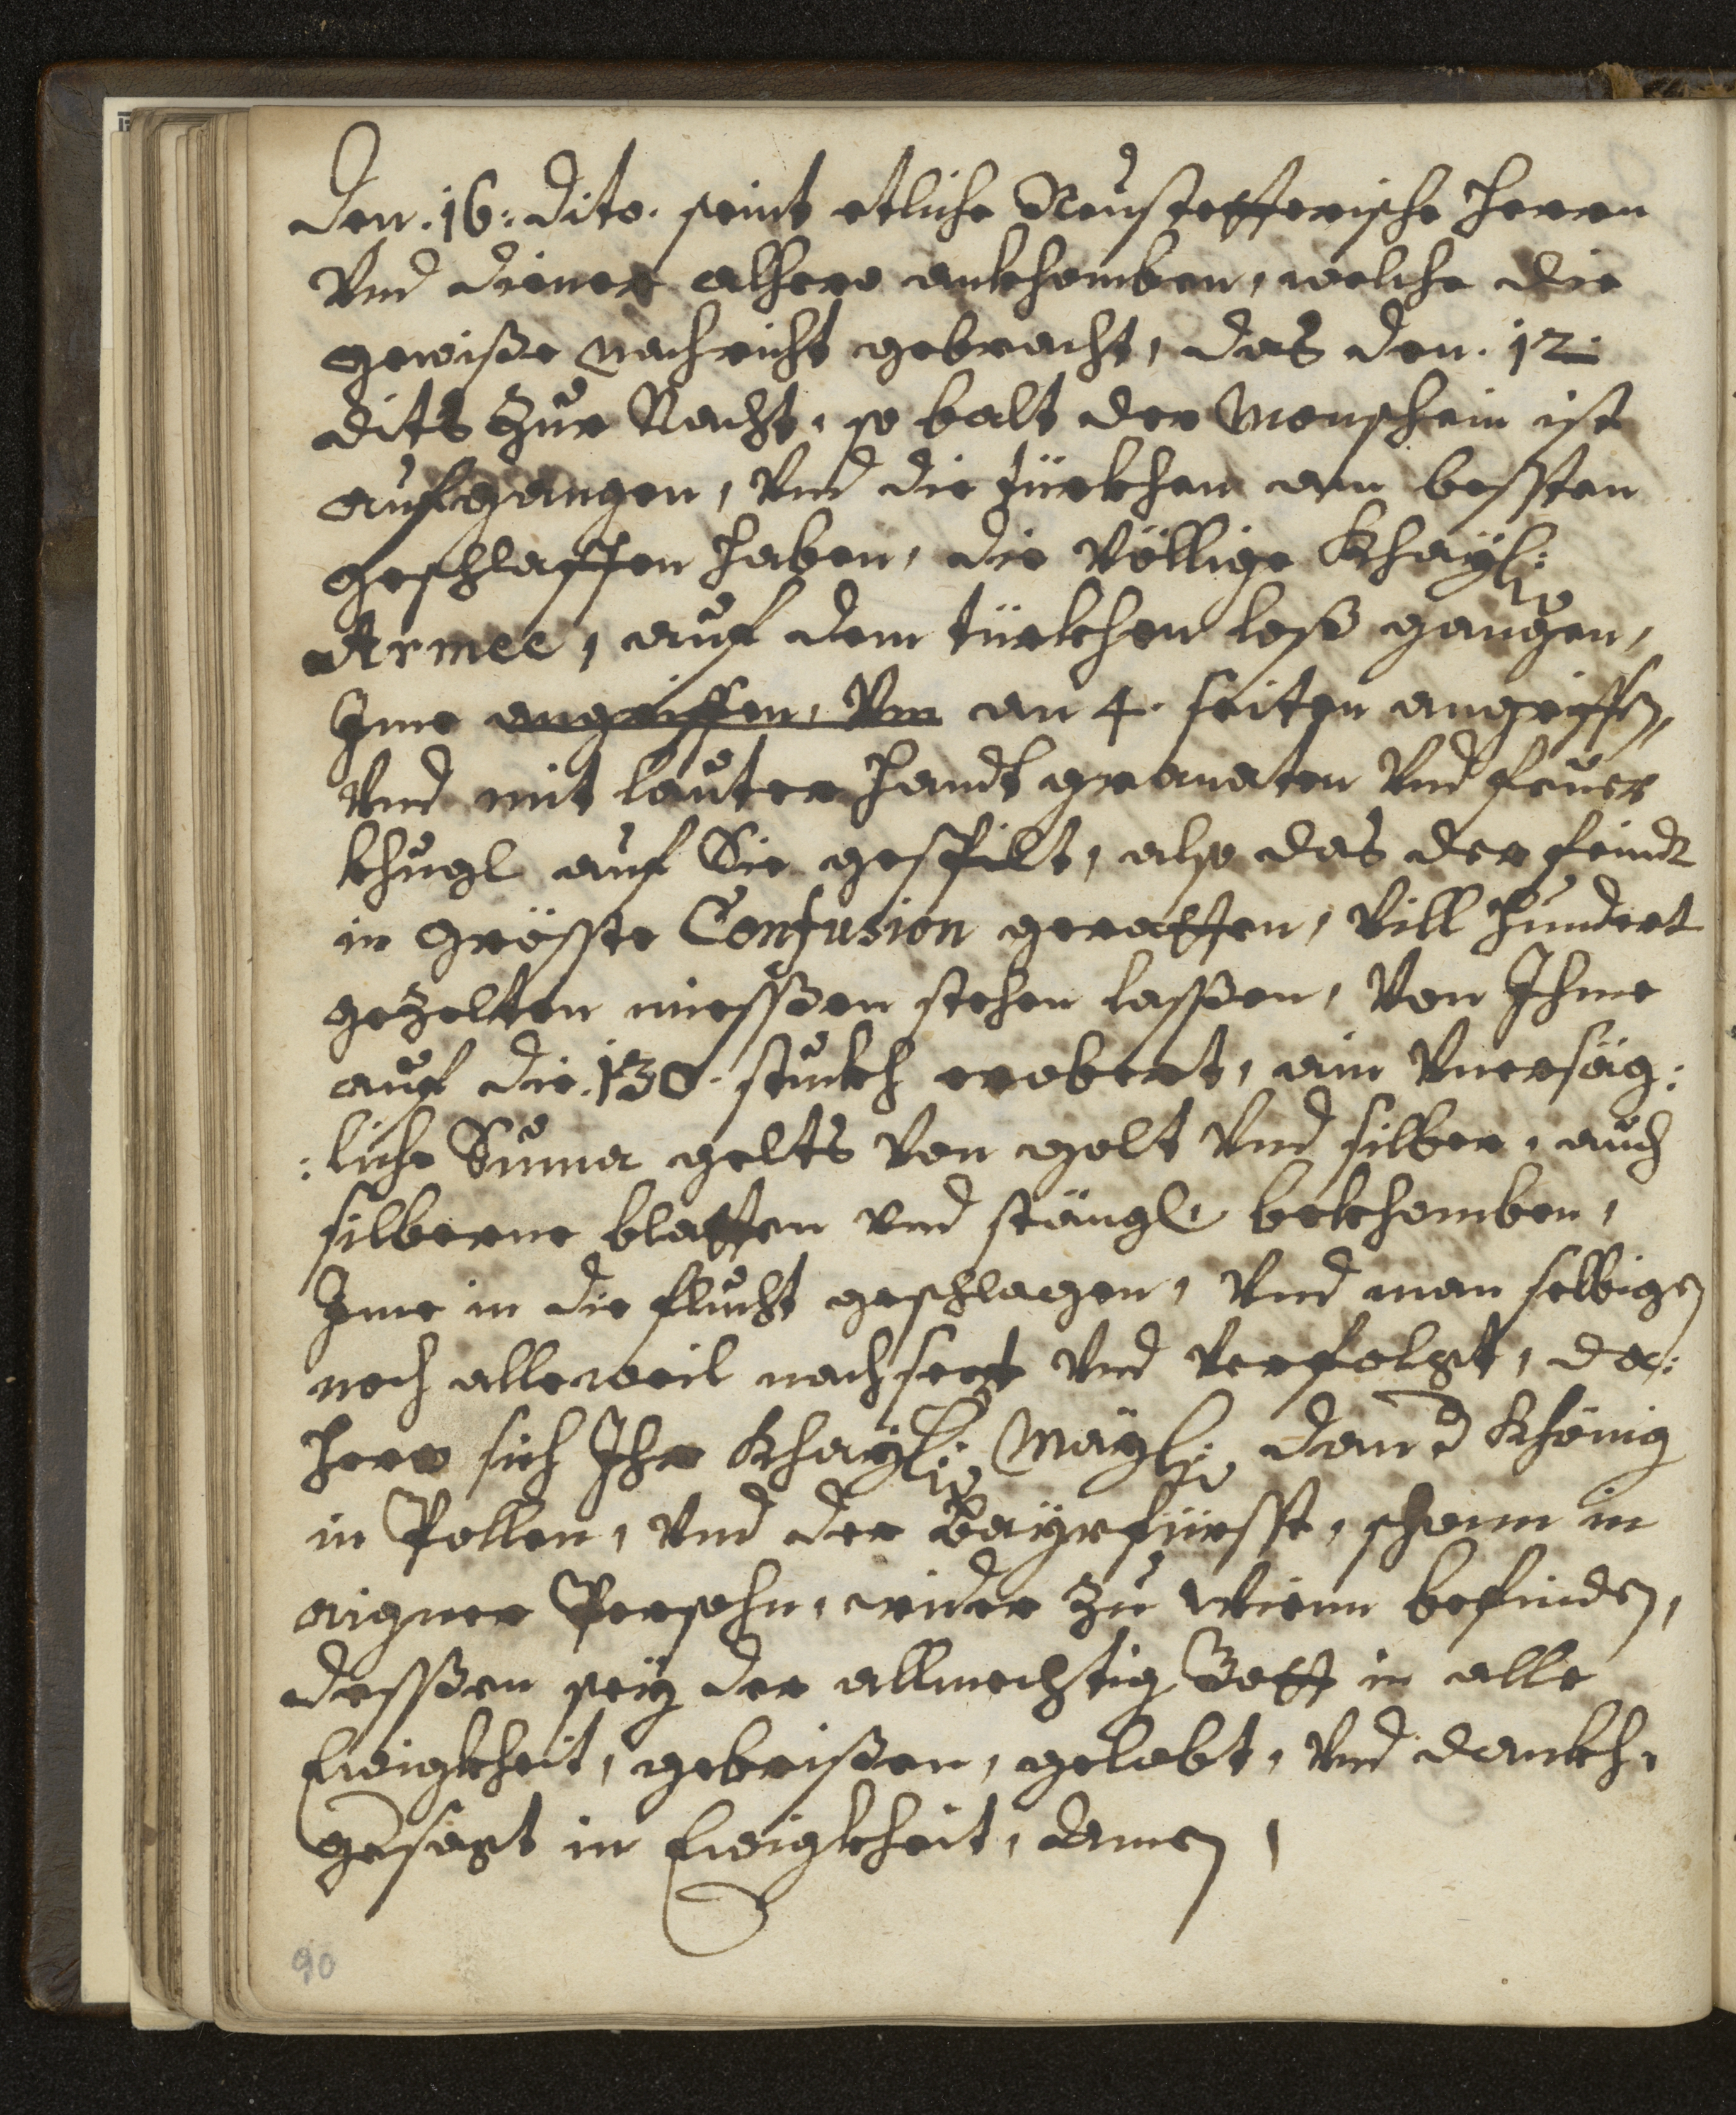 Den. 16: dito. seint etliche Neustetterische Herrn
Vnd diener alhero ankhomben, welche die
gewiße nachricht gebracht, das den. 12.
dits Zur Nacht, so balt der Monschein ist
aufgangen, Vnd die türkhen am bessten
geschlaffen haben, die Völlige Khaÿl:
Armee, auf dem türkhen loß gangen,
Ime angriffen, Vm an 4. seiten angriffen,
Vnd mit lauter handt granaten Vnd feuer
khugl auf Sie gespilt, also das der feindt
in Gröste Confusion geratten, Vill hundert
gezelten miessen stehen lassen, Von Ihme
auf die. 130. stukh erobert, ein Vnersäg:
:liche Suma gelts Von golt Vnd silber, auch
silberne blatten vnd stängl, bekhomben,
Ime in die flucht geschlagen, Vnd man selbigen
noch alleweil nachsezt Vnd Verfolgt, da:
hero sich Ihr Khaÿl: Maÿl: dan d Khönig
in Pollen, Vnd der Bayrfürsst, schonn in
aigner Persohn, wider zu Wienn befinden,
dessen seÿ der allmechtig Gott in alle
Ewigkheit, gebrißen, gelobt, Vnd dankh,
gesagt in Ewigkheit, Amen,
90